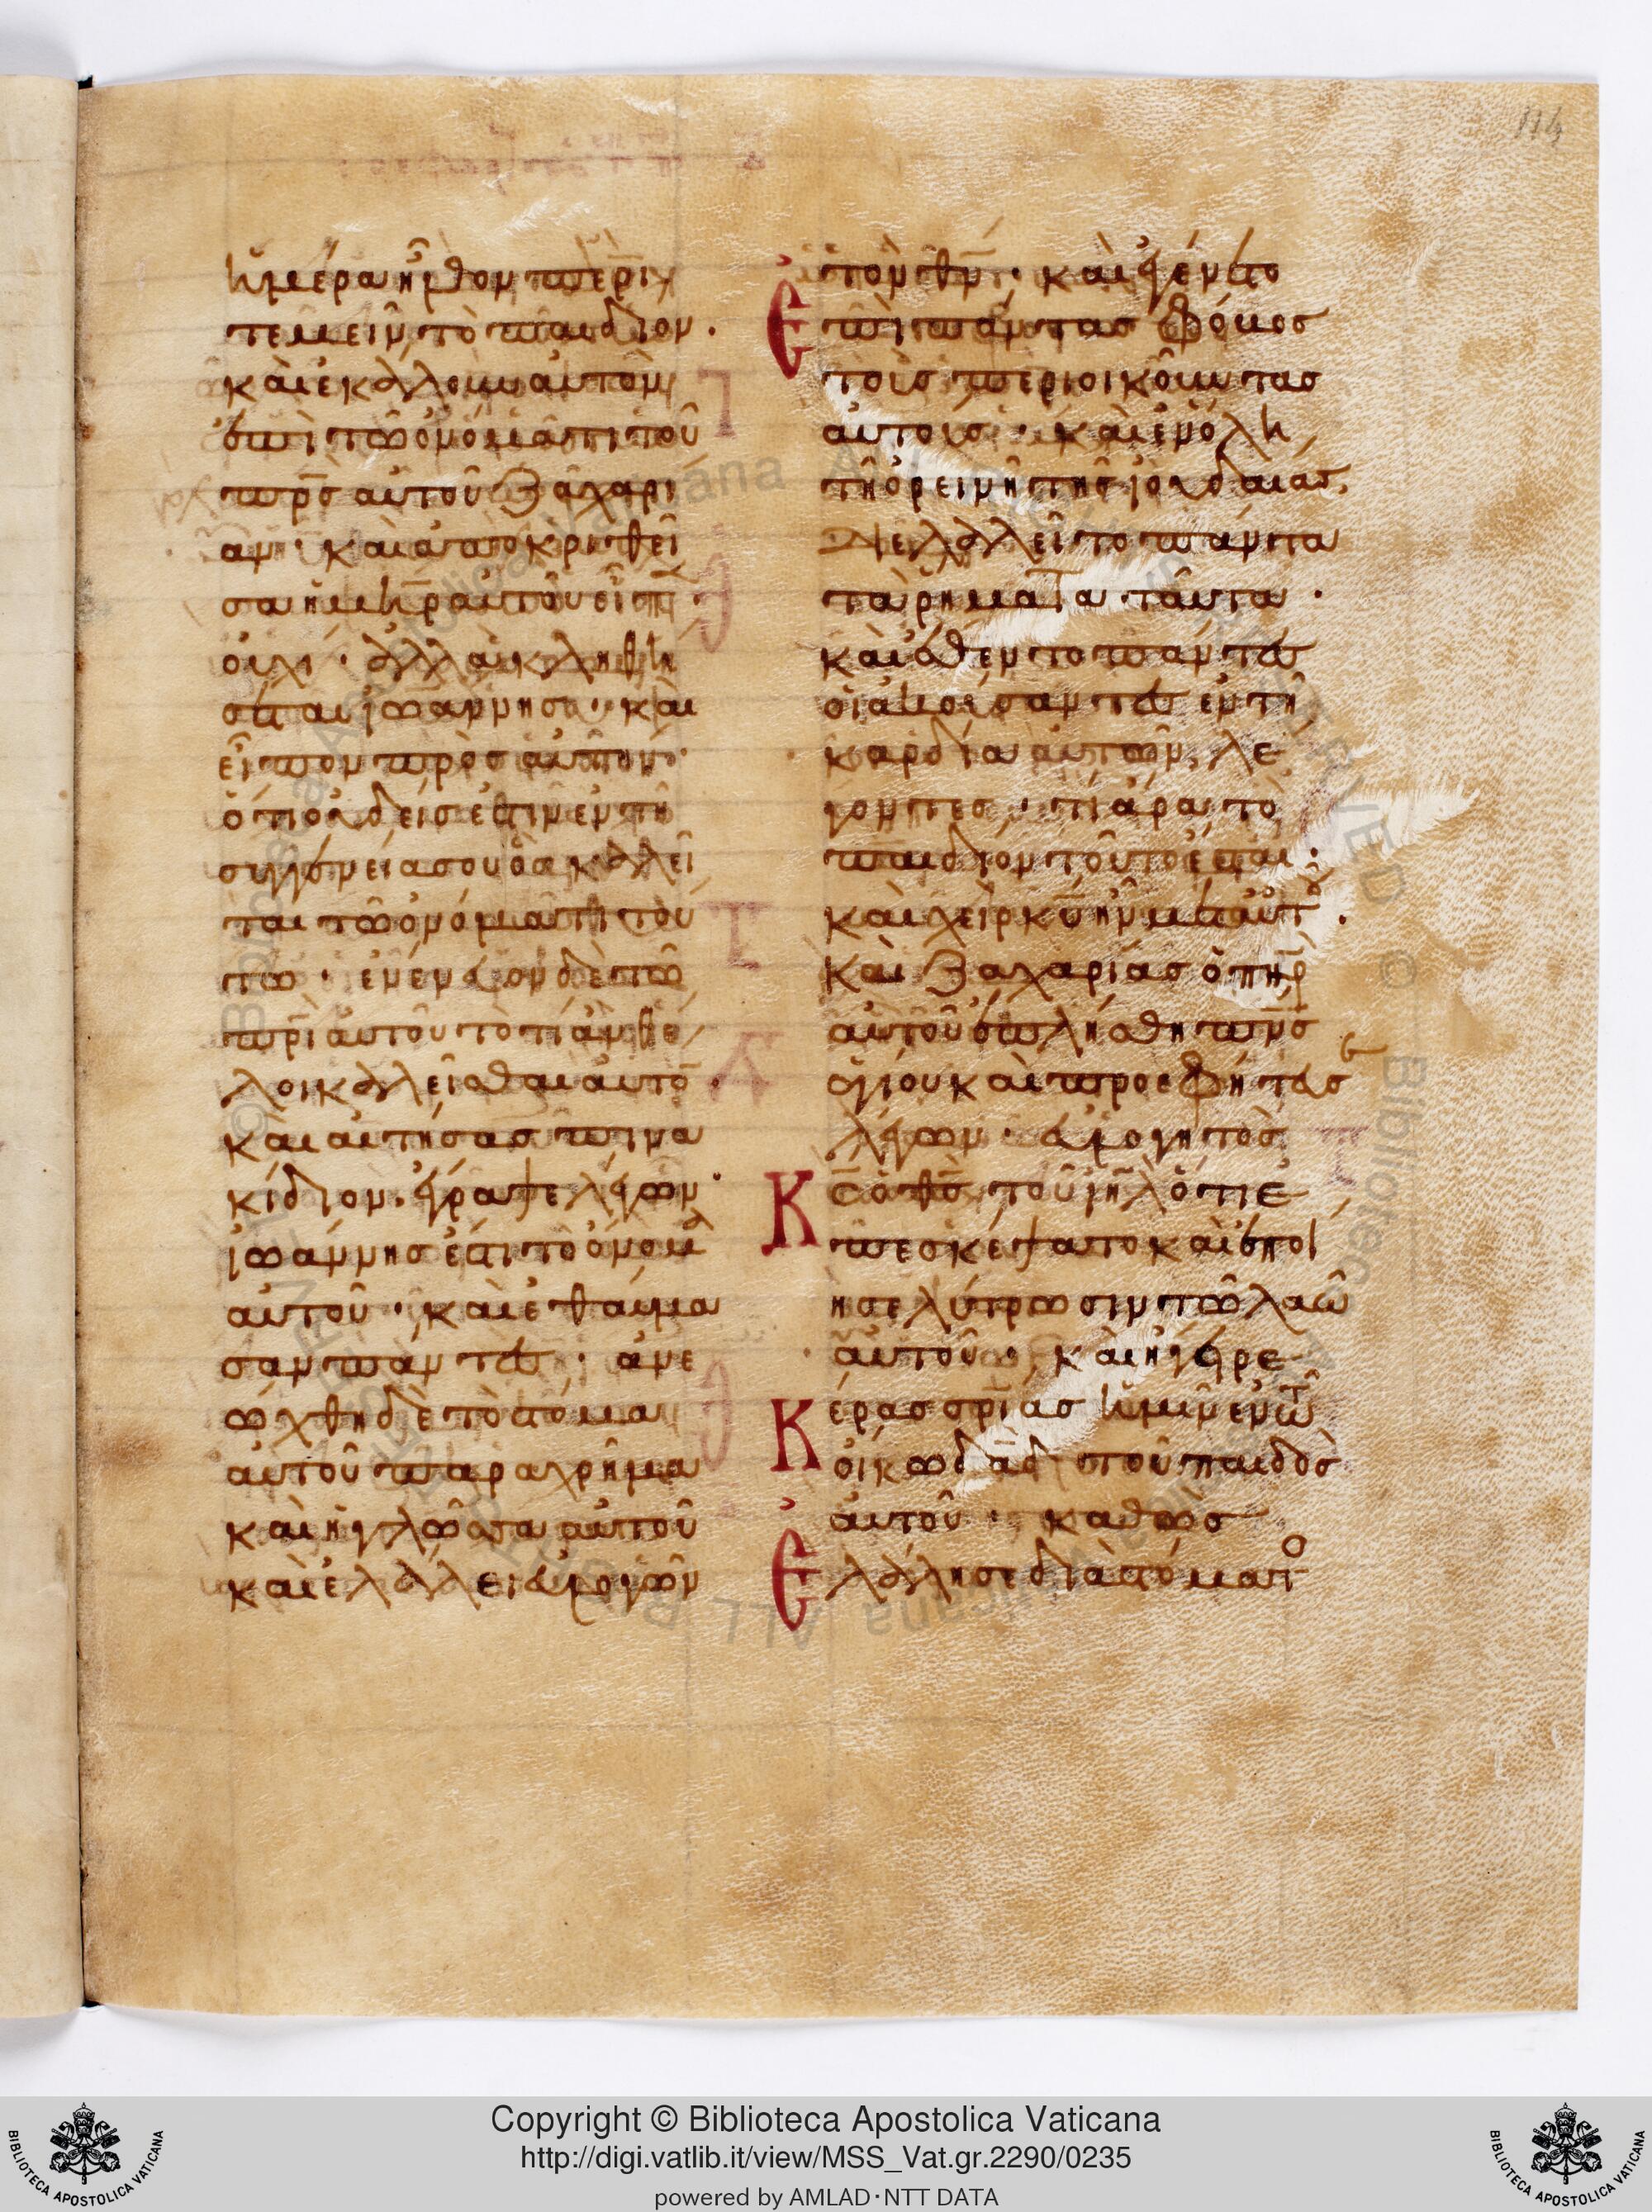 114
ἡμέρα ἦλθον περι
τεμεῖν τὸ παιδίον ·
καὶ ἐκάλουν αὐτὸν
ἐπὶ τῶ ὀνόματι τοῦ
πρ̅σ αὐτοῦ Ζαχαρί
αν · καὶ ἀποκριθεῖ
σα ἡ μη̅ρ αὐτοῦ εἶπε̅ ·
οὐχί · ἀλλὰ κληθή
σεται ἰωάννησ · καὶ
εἶπον πρὸσ αὐτήν ·
ὅτι οὐδείσ ἐστιν ἐν τῆ
συγγενεία σου ὃσ καλεῖ
ται τῶ ὀνόματι τού
τω · ἐνένευον δὲ τῶ
πρ̅ι αὐτοῦ τὸ τί ἂν θέ
λοι καλεῖσθαι αὐτό̅ ·
καὶ αἰτήσασ πινα
κίδιον, ἔγραψε λέγων ·
ἰωάννησ ἐστι τὸ ὄνομα
αὐτοῦ · καὶ ἐθαύμα
σαν πάντεσ · ἀνε
ώχθη δὲ τὸ στόμα
αὐτοῦ παραχρῆμα
καὶ ἡ γλῶσσα αὐτοῦ
καὶ ἐλάλει εὐλογῶν
τὸν θν̅ · καὶ ἐγένετο
Ἐπὶ πάντασ φόβοσ
τοὺσ περιοικοῦντασ
αὐτούσ · καὶ ἐν ὅλη
τῆ ὀρεινῆ τῆσ ἰουδαίασ,
διελαλεῖτο πάντα
τὰ ῥήματα ταῦτα ·
καὶ ἔθεντο πάντεσ
οἱ ἀκούσαντεσ ἐν τῆ
καρδία αὐτῶν, λέ
γοντεσ · τί ἄρα τὸ
παιδίον τοῦτο ἔσται ;
καὶ χεὶρ κ̅υ ἦν μετ αὐτοῦ ·
καὶ Ζαχαρίασ ὁ πη̅ρ
αὐτοῦ ἐπλήσθη πν̅σ
ἁγίου καὶ προεφήτευσε
λέγων · εὐλογητὸσ
Κ̅σ ὁ θ̅σ τοῦ ιη̅λ ὅτι ἐ
πεσκέψατο καὶ ἐποί
ησε λύτρωσιν τῶ λαῶ
αὐτοῦ · καὶ ἤγειρε
Κέρασ σρ̅ίασ ἡμῖν ἐν τῶ
οἴκω δα̅δ τοῦ παιδὸσ
αὐτοῦ · καθὼσ
Ἐλάλησε διὰ στόματο
Copyright © Biblioteca Apostolica Vaticana
http://digi.vatlib.it/view/MSS_Vat.gr.2290/0235
powered by AMLAD·NTT DATA
BIBLIOTECA APOSTOLICA VATICANA
BIBLIOTECA APOSTOLICA VATICANA